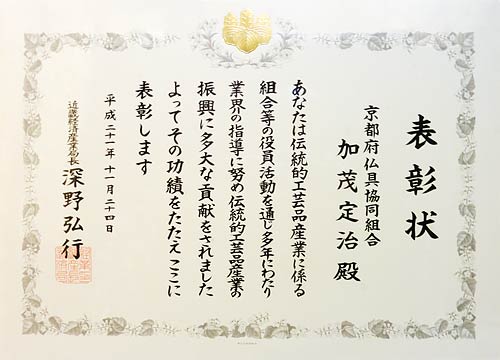 表彰状
京都府仏具協同組合
加茂定治殿
あなたは伝統的工芸品産業に係る
組合等の役員活動を通じ多年にわたり
業界の指導に努め伝統的工芸品産業の
振興に多大な貢献をされました
よってその功績をたたえここに
表彰します
平成二十一年十一月二十四日
近畿経済産業局長
深野弘行